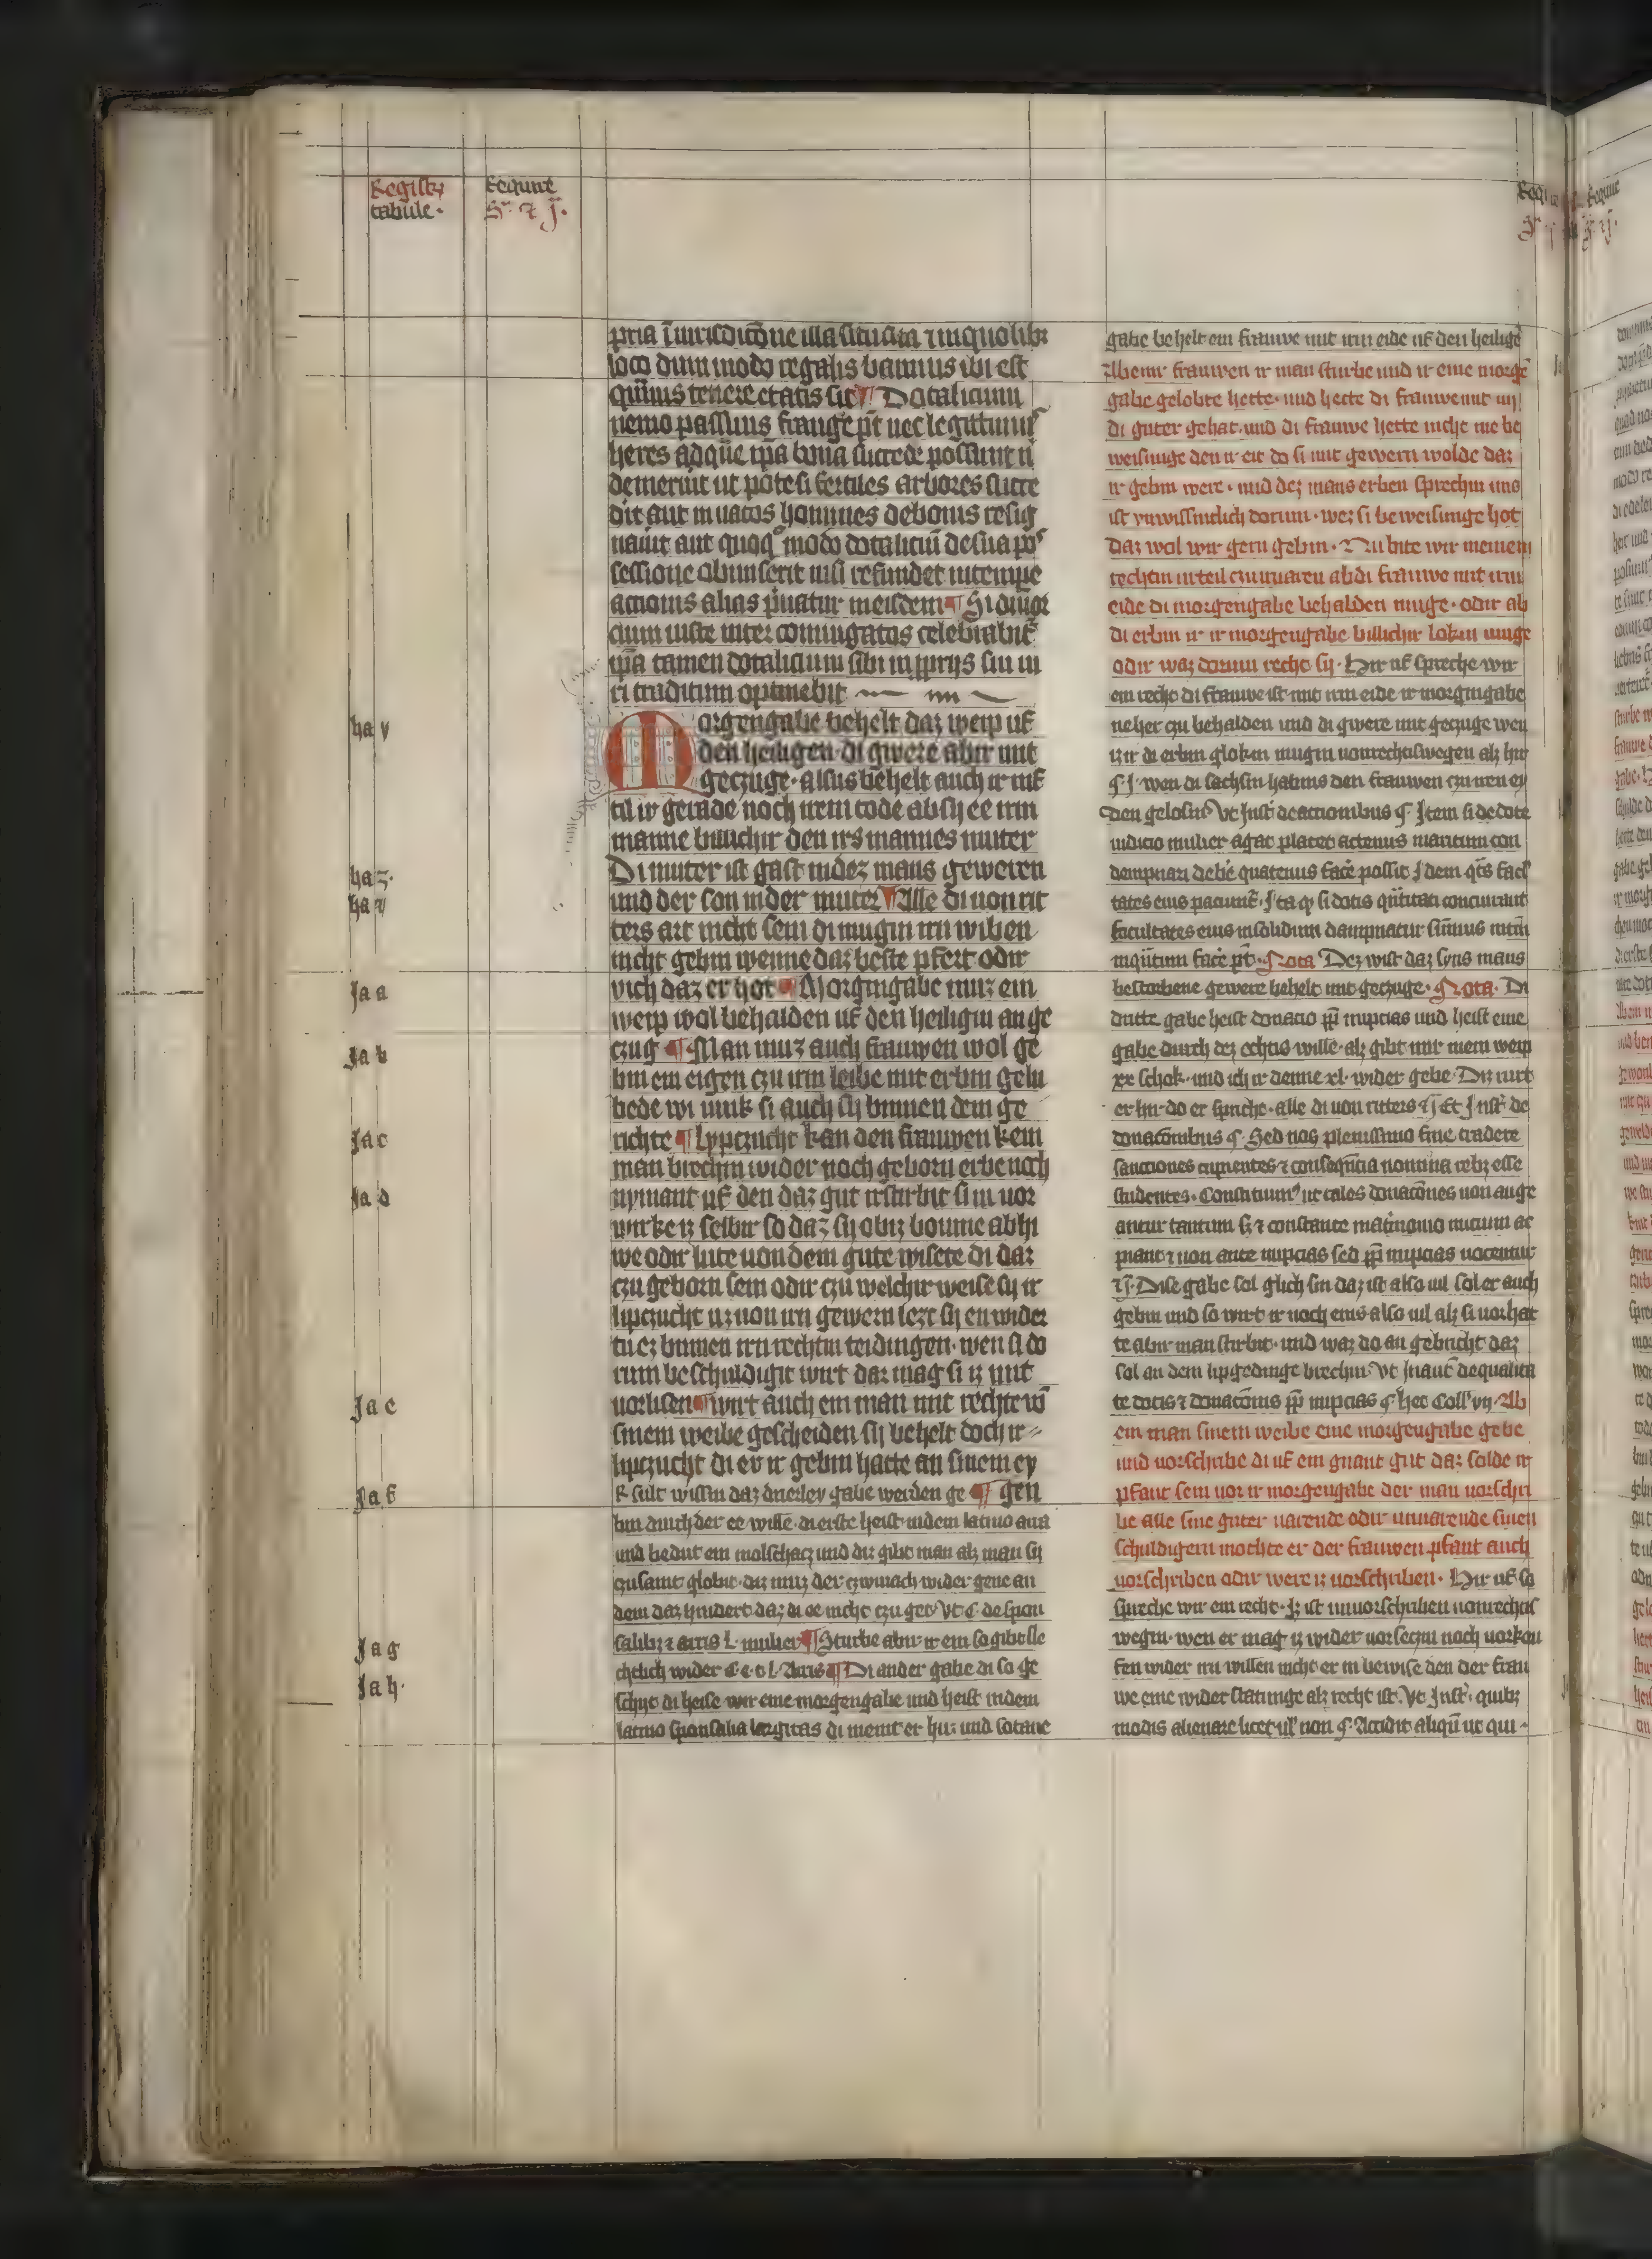 Registrum tabule.
Sequntur
pria iurisdictōne illa situata in quolibet
loco dum modo regalis bannus ibi est
quāuis tenere etatis sit ¶ Dotalicium
nemo passiuus frangere pt nec legittimus
heres ad quē ipā bona succede possunt ni
demeruit ut pote si fertiles arbores succi
dit aut in natos homines de bonis resig
nauit aut quoq modo dotaliciū de sua pos
sessione alium serit nisi refundet in tempe
actionis alias priuatur in eisdem ¶ Si diuor
cium iuste inter coniugatos celebrabit
ipā tamen dotalicium sibi in pprijs sui ui
ri traditum optinebit
hay
Morgengabe behelt daz weip uf
den heiligen di gwere abir mit
geczuge · alsus behelt auch ir nif
til ir gerade noch irem tode ab sy ee irm
manne billichir den irs mannes muter
Di muter ist gast in dez mans geweren
haz.
und der son in der muter ¶ Alle di uon rit
ters art nicht sein di mugin irn wiben
nicht gebin wenne daz beste pfert odir
vich daz er hot ¶ Morgingabe muz ein
Jaa
weip wol behalden uf den heiligin an ge
czug ¶ Man muz auch frauwen wol ge
Jab
bin ein eigen czu irm leibe mit erbin gelu
bede wi iunk si auch sy binnen dem ge
richte ¶ lypczucht kan den frauwen kein
Jac
man brechin wider noch geborn erbe noch
nymant uf den daz gut irstirbit si in uor
Jad
wirke iz selbir so daz sy obiz boume abhi
we odir lute uon dem gute wisete di dar
czu geborn sein odir czu welchir weise sy ir
lipczucht uz uon irn gewern lezt sy en wider
tu ez binnen irn rechtin teidingen · wen si do
rum beschuldigit wirt dar mag si iz mit
uorlisen ¶ wirt auch ein man mit rechte vō
Jae
sinem weibe gescheiden sy behelt doch ir
lipczucht di er ir gebin hatte an sinem ey
gen
Jaf
R sult wissin daz drierley gabe werden ge
bin durch der ee wille · di erste heist in dem latino arra
und bedut ein molschacz und dir gibt man alz man sy
czusamt globit · daz muz der czwiuach wider gene an
dem daz hindert daz di ee nicht czu get Vt C de spon
salibz et arris l· mulier ¶ Sturbe abir ir ein so gibe sle
Jag
chtlich wider C e t l· Arris ¶ Di ander gabe di so ge
Jah.
schyt di heise wir eine morgengabe und heist in dem
latino sponsalia largitas di meint er hir und sotane
gabe behelt ein frauwe mit irm eide uf den heilige
Wenn frauwen ir man sturbe und ir eine morge
gabe gelobte hette · und hette di frauwe mit im
di guter gehat · und di frauwe hette nicht me be
weisunge den ir eit do si mit gewern wolde daz
ir gebin were · und dez mans erben sprechin uns
ist vnwissintlich dorum · wez si beweisunge hot
daz wol wir gern gebin · Nu bite wir meinem
rechtin urteil czu uuaren ab di frauwe mit irm
eide di morgengabe behalden muge · odir ab
di erbin ir ir morgengabe billichir loken muge
odir waz dorum recht sy · Hir uf spreche wir
ein recht di frauwe ist mit irm eide ir morgingabe
neher czu behalden und di gwere mit geczuge wen
iz ir di erbin glokin mugin uon rechtiswegen alz hir
wen di sachsin habins den frauwen czu nen ey
den gelosin Vt Inst' de actionibus § Item si de dote
iudicio mulier agat placet actenus maritum con
dempnari debē quatenus facē possit Idem qts facl
tates eius paciunt · Ita qz si dotis qūtitati concurrant
facultates eius in solidum dampnatur sīmus mtm
inqūtum facē pt · Nota Dez wist daz syns mans
bestorbene gewere behelt mit geczuge · Nota · Di
dritte gabe heist donacio pp̄ nupcias und heist eine
gabe durch dez echtis wille · alz gibt mir mein weip
xx schok · und ich ir denne xl· wider gebe · Diz rurt
er hir do er spricht · alle di uon ritters et Et Inst' de
donacōnibus § Sed nos plenissimo fine tradere
sancciones cupientes et conseqūcia nomina rebz esse
studentes · Constituimus ut tales donacōnes non auge
antur tantum sz et constante matrīmonio inicium ac
piant et non ante nupcias sed pp̄ nupcias uocentur
Dise gabe sol glich sin daz ist also uil sol er auch
gebin und so wirt ir noch eins also uil alz si uor hat
te abir man stirbit · und waz do an gebricht daz
sol an dem lipgedinge brechin Vt Inautē de qualita
te dotis et donacōnis pp̄ nupcias § hec Coll' vij · Ab
ein man sinem weibe eine morgengabe gebe
und uorschribe di uf ein gnant gut daz solde ir
pfant sein uor ir morgengabe der man uorschri
be alle sine guter uarende odir unuarende sinen
schuldigern mochte er der frauwen pfant auch
uorschriben odir were iz uorschriben · Hir uf so
spreche wir ein recht · Iz ist unuorschriben uon rechtis
wegin · wen er mag iz wider uorseczin noch uorkou
fen wider irn willen nicht er in bewise den der frau
we eine wider statunge alz recht ist · Vt Inst' · quibz
modis alienare licet ul' non § Accidit aliqū ut qui